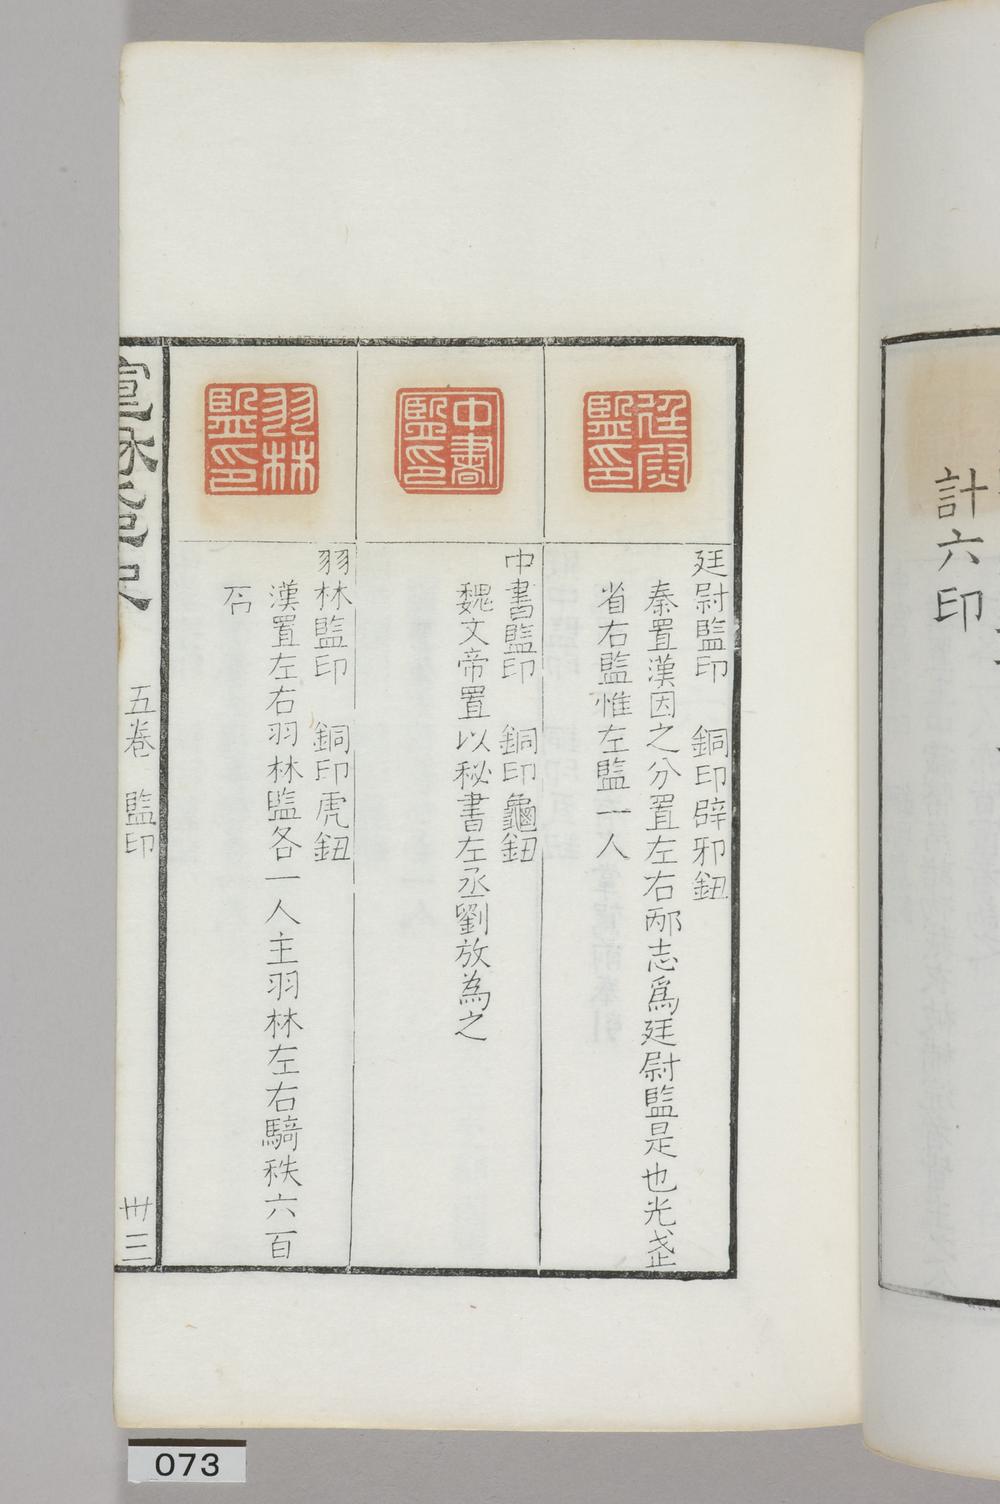 計六印
廷尉監印
廷尉監印 銅印辟邪鈕
秦置漢因之分置左右邴志爲廷尉監是也光武
省右監惟左監一人
中書監印
中書監印 銅印龜鈕
魏文帝置以秘書左丞劉放為之
羽林監印
羽林監印 銅印虎鈕
漢置左右羽林監各一人主羽林左右騎秩六百
石
五卷 監印
卅三
073